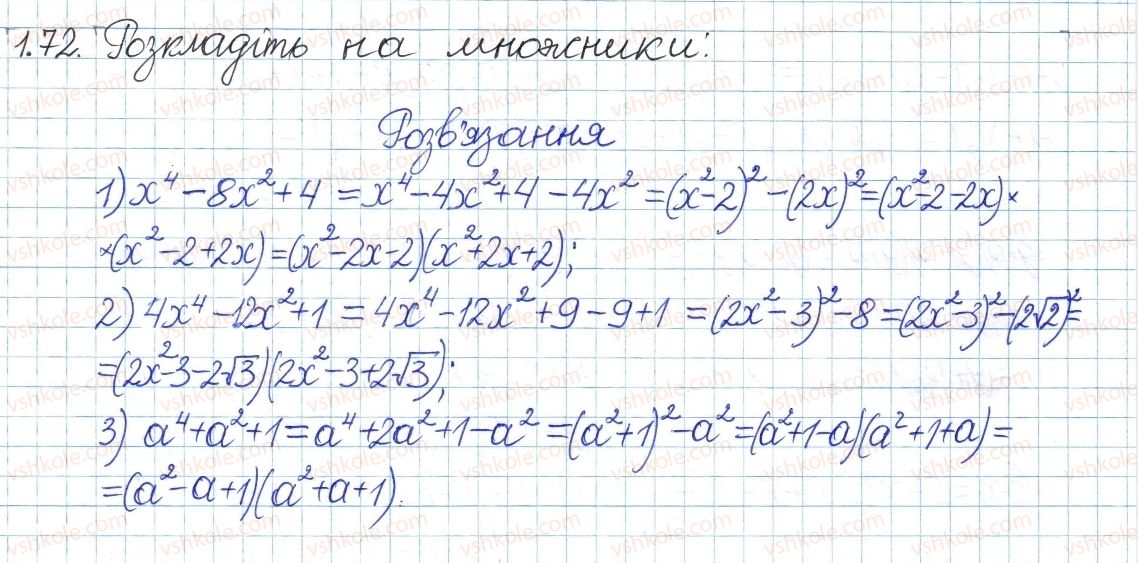 1.72. Розкладіть на множники:
Розв'язання
1) x⁴ – 8x² + 4 = x⁴ – 4x² + 4 – 4x² = (x² – 2)² – (2x)² = (x² – 2 – 2x) ×
× (x² – 2 + 2x) = (x² – 2x – 2)(x² + 2x + 2);
2) 4x⁴ – 12x² + 1 = 4x⁴ – 12x² + 9 – 9 + 1 = (2x² – 3)² – 8 = (2x² – 3)² – (2√2)² =
= (2x² – 3 – 2√3)(2x² – 3 + 2√3);
3) a⁴ + a² + 1 = a⁴ + 2a² + 1 – a² = (a² + 1)² – a² = (a² + 1 – a)(a² + 1 + a) =
= (a² – a + 1)(a² + a + 1).